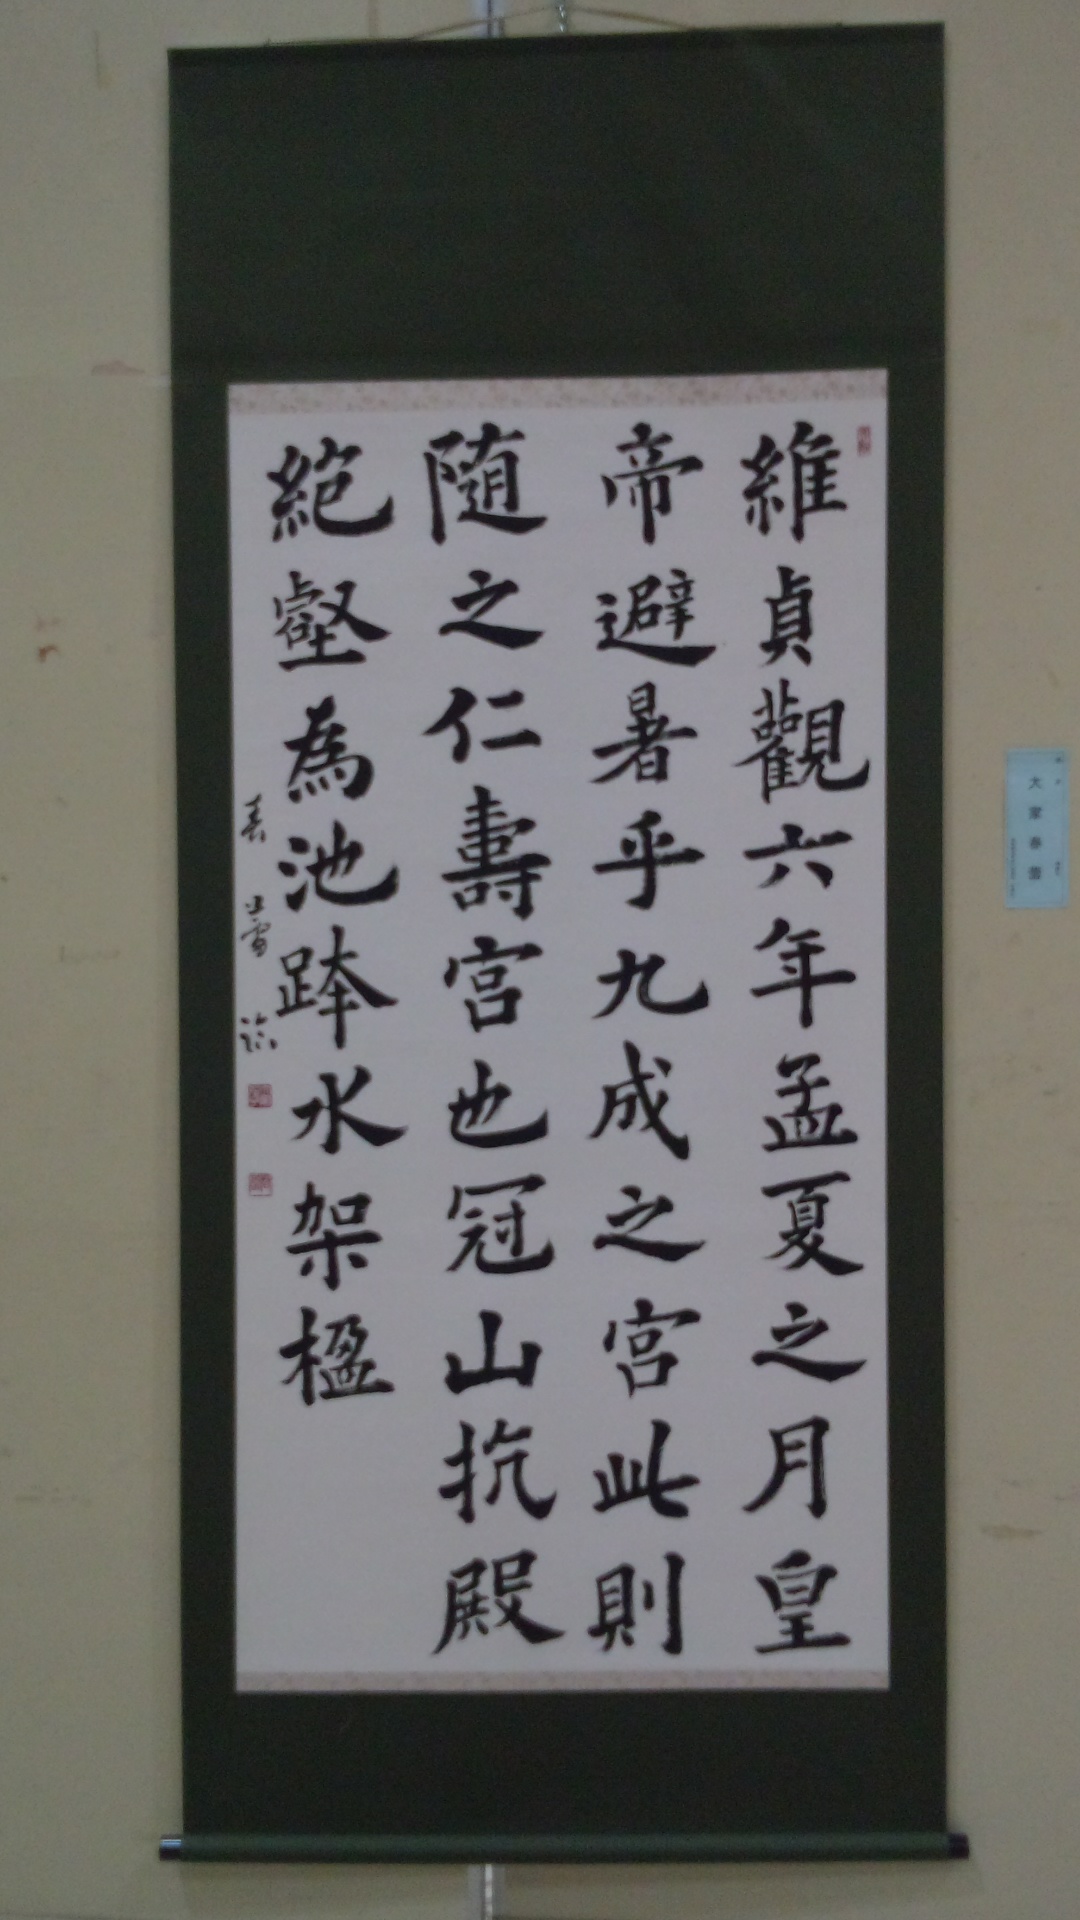 維貞觀六年孟夏之月皇
帝避暑乎九成之宮此則
随之仁壽宮也冠山抗殿
絶壑為池跨水架楹
春雪臨
大家春雪